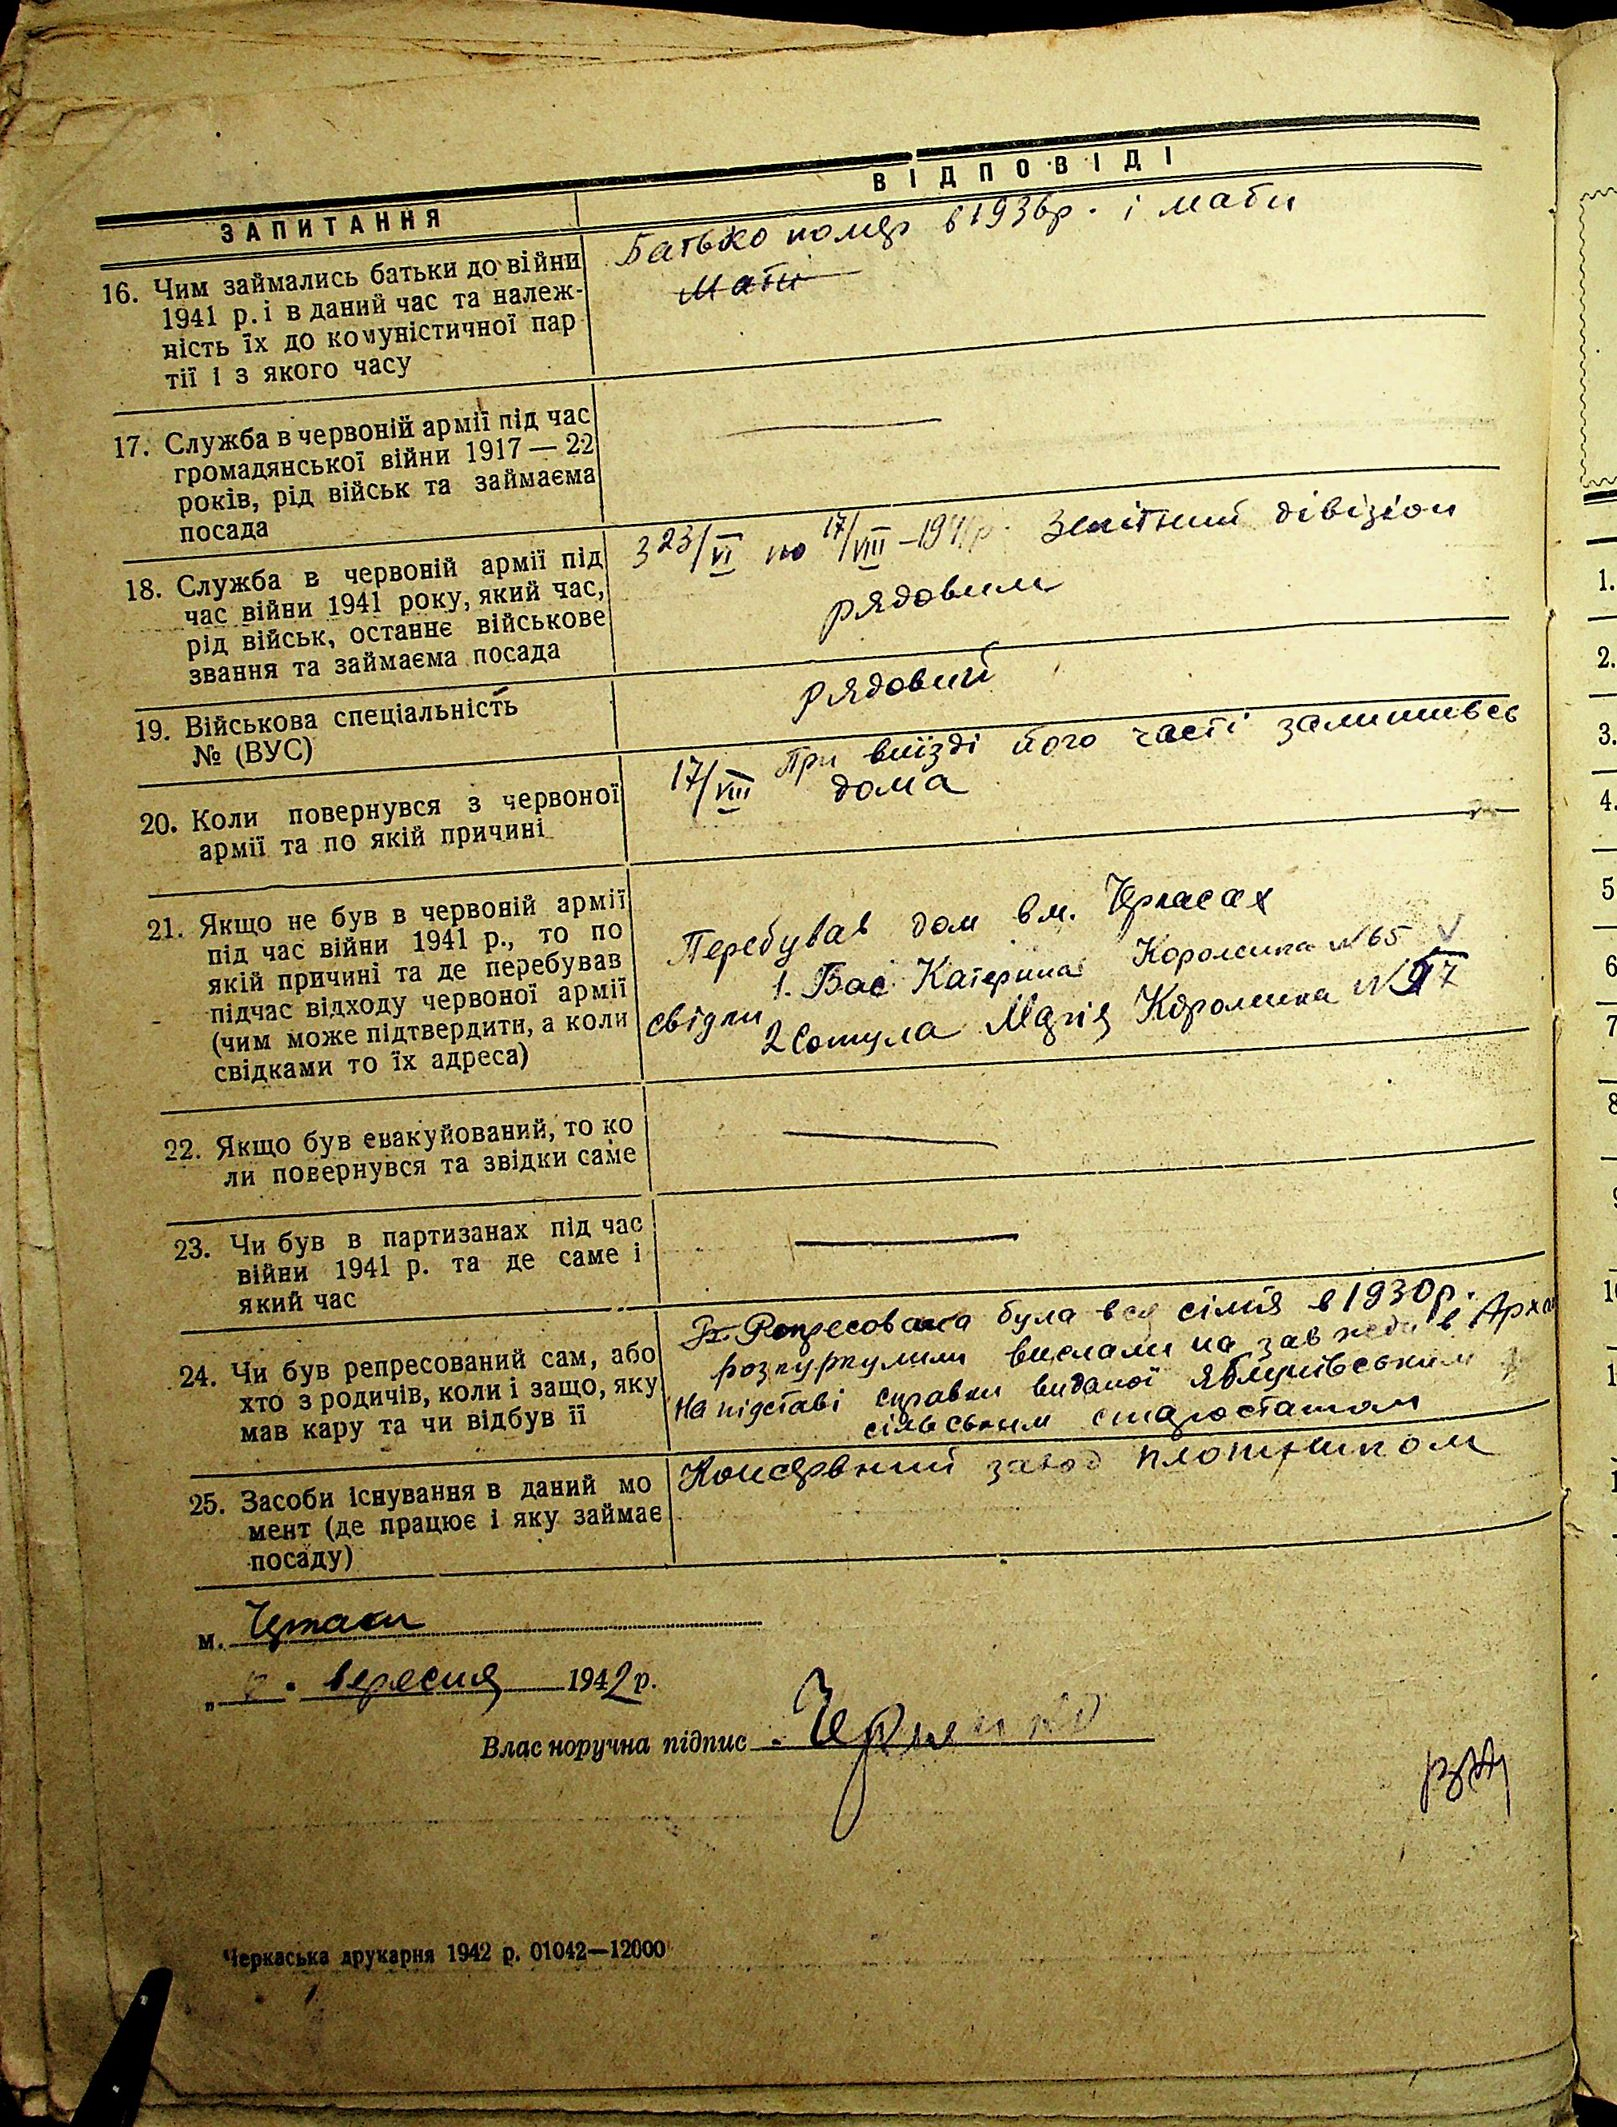 ЗАПИТАННЯ
ВІДПОВІДІ
16. Чим займались батьки до війни
1941 р. і в даний час та належ-
ність їх до комуністичної пар
тії і з якого часу
Батько помер в 1936р. і мати
мати
17. Служба в червоній армії під час
громадянської війни 1917 — 22
років, рід військ та займаєма
посада
18. Служба в червоній армії під
час війни 1941 року, який час,
рід військ, останнє військове
звання та займаєма посада
З 23/VI по 17/VIII – 1941р. Зенітний дівізіон
рядовим
19. Військова спеціальність
№ (ВУС)
рядовий
20. Коли повернувся з червоної
армії та по якій причині
17/VIII При виїзді його часті залишивсь
дома
21. Якщо не був в червоній армії
під час війни 1941 р., то по
якій причині та де перебував
підчас відходу червоної армії
(чим може підтвердити, а коли
свідками то їх адреса)
Перебував дом в м. Черкасах
1. Катерина №65
свідки
2 Сотула Марія №97
22. Якщо був евакуйований, то ко
ли повернувся та звідки саме
23. Чи був в партизанах під час
війни 1941 р. та де саме і
який час
24. Чи був репресований сам, або
хто з родичів, коли і защо, яку
мав кару та чи відбув її
Репресована була вся сімія в 1930р.
розкуркулили вислали на завжеди в Арха
На підставі справки виданої Яблунівським
сільським старостатом
25. Засоби існування в даний мо
мент (де працює і яку займає
посаду)
Консервний завод плотником
м. Черкаси
„ . вересня 1942 р.
Влас норучна підпис Черненко
Черкаська друкарня 1942 р. 01042—12000
1.
2.
3.
4.
5
6
7
8